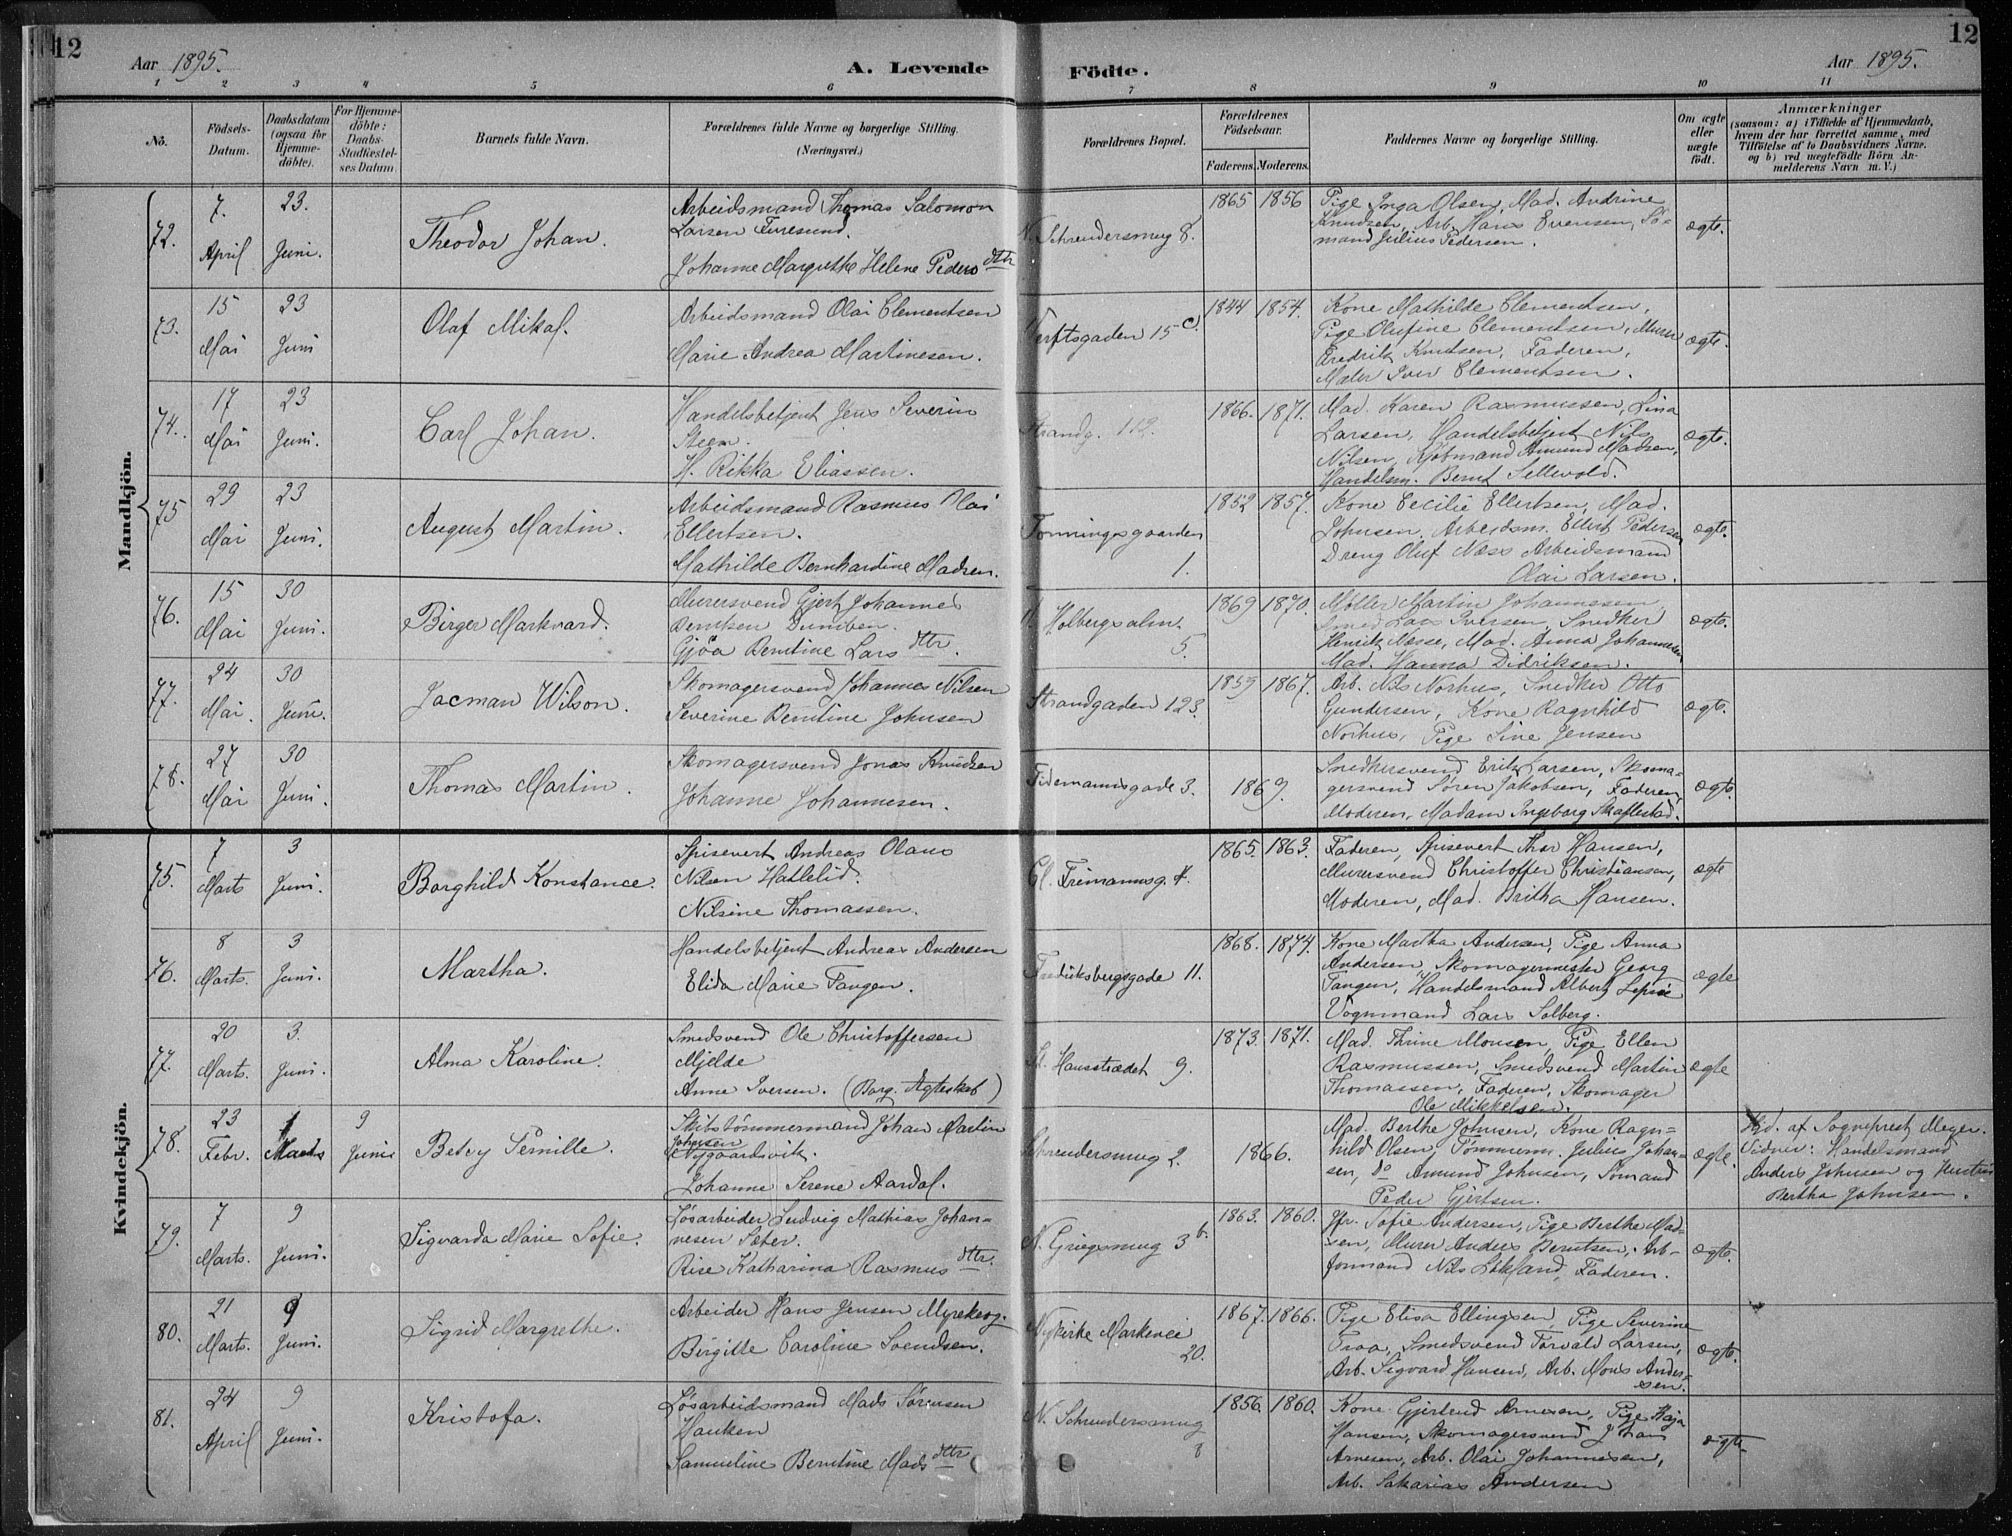 12
Aar 1895.
A. Levende
Födte.
Aar 1895.
12
1 2 3 4 5 6 7 8 9 10 11
No.
Födsels-
Datum.
Daabsdatum
(ogsaa for
Hjemme-
döbte).
For Hjemme-
döbte:
Daabs-
Stadfæstel-
ses Datum
Barnets fulde Navn.
Forældrenes fulde Navne og borgerlige Stilling.
(Næringsvei.)
Forældrenes Bopæl.
Forældrenes
Födselsaar.
Faderens. Moderens.
Faddernes Navne og borgerlige Stilling.
Om ægte
eller
uægte
födt.
Anmærkninger
(saasom: a) i Tilfælde af Hjemmedaab,
hvem der har forrettet samme, med
Tilföielse af to Daabsvidners Navne.
og b) ved uægtefödte Börn An-
melderens Navn m. V.)
Mandkjön.
72.
7.
April
23.
Juni.
Theodor Johan.
Arbeidsmand Thomas Salomon
Larsen Furesund.
Johanne Margrethe Helene Peders dttr
N. Schreudersmug 8.
1865 1856
Pige Inga Olsen, Mad. Andrine
Knudsen, Arb. Hans Evensen, Sö-
mand Julius Pedersen.
ægte.
73.
15
Mai
23
Juni
Olaf Mikal.
Arbeidsmand Olai Clementsen
Marie Andrea Martinesen.
Verftsgaden 15 c.
1844 1854.
Kone Mathilde Clementsen,
Pige Olufine Clementsen, Murer
Fredrik Knutsen, Faderen,
Maler Iver Clementsen.
ægte.
74.
17
Mai
23
Juni.
Carl Johan.
Handelsbetjent Jens Severin
Steen.
H. Rikka Eliassen.
Strandg. 112.
1866. 1871.
Mad. Karen Rasmussen, Lina
Larsen, Handelsbetjent Nils
Nilsen, Kjöbmand Amund Madsen,
Handelsm. Bernt Sellevold.
ægte.
75
29
Mai
23
Juni.
August Martin.
Arbeidsmand Rasmus Olai
Ellertsen.
Mathilde Bernhardine Madsen.
Fonningsgaarden
1.
1852 1857.
Kone Cecilie Ellertsen, Mad.
Johnsen, Arbeidsm. Ellert Pedersen
Dreng Oluf Næss Arbeidsmand
Olai Larsen.
ægte.
76.
15
Mai
30
Juni.
Birger Markvard.
Murersvend Gjert Johannes
Gjöa Berntine Lars dttr.
Holbergsalm.
5.
1869 1870.
Möller Martin Johannessen
Smed Lars Iversen, Snedker
Henrik Messe, Mad. Anna Johannesen
Mad. Hanna Didriksen.
ægte.
77.
24
Mai.
30
Juni.
Jacman Wilson.
Skomagersvend Johannes Nilsen
Severine Berntine Johnsen
Strandgaden 123.
1859 1867.
Arb. Nils Norhus, Snedker Otto
Gundersen, Kone Ragnhild
Norhus, Pige Sine Jensen
ægte.
78.
27
Mai
30
Juni.
Thomas Martin.
Skomagersvend Jonas Knudsen
Johanne Johannesen.
Tidemannsgade 3.
1869.
Snedkersvend Erik Larsen, Skoma-
gersvend Sören Jakobsen, Faderen,
Moderen, Madam Ingeborg Skaflestad.
ægte.
Kvindekjön.
75.
7
Marts
3
Juni.
Borghild Konstance.
Spisevert Andreas Olaus
Nilsen Hatlelid.
Nilsine Thomassen.
Gl. Freimannsg. 4.
1865. 1863.
Faderen, Spisevert Thor Hansen,
Murersvend Christoffer Christiansen,
Moderen, Mad. Britha Hansen.
ægte
76.
8
Marts.
3
Juni.
Martha.
Handelsbetjent Andreas Andersen
Elida Marie Tangen.
Fredriksbergsgade 11.
1868. 1874.
Kone Martha Andersen, Pige Anna
Andersen, Skomagermester Georg
Tangen, Handelsmand Albert Lepsöe
Vognmand Lars Solberg.
ægte
77.
20
Marts.
3.
Juni.
Alma Karoline.
Smedsvend Ole Christoffersen
Mjelde
Anne Iversen. (Borg. Egteskab)
St. Hansstrædet 9.
1873. 1871.
Mad. Thrine Monsen, Pige Ellen
Rasmussen, Smedsvend Martin
Thomassen, Faderen, Skomager
Ole Mikkelsen.
ægte
78.
23
Febr.
1
Marts
9
Juni
Betsy Pernille.
Skibstömmermand Johan Martin
Johnsen
Nygaardsvik.
Johanne Serene Aardal.
Schreudersmug 2.
1866.
Mad. Berthe Johnsen, Kone Ragn-
hild Olsen, Tömmerm. Julius Johan-
sen, do Amund Johnsen, Sömand
Peder Gjertsen.
ægte.
Hjd. af Sogneprest Meyer.
Vidner: Handelsmand
Anders Johnsen og Hustru
Bertha Johnsen.
79.
7
Marts.
9
Juni.
Sigvarda Marie Sofie.
Lösarbeider Ludvig Mathias Johan-
nesen Sæter.
Rise Katharina Rasmus dttr.
N. Griegsmug 3 b.
1863. 1860.
Jfr. Sofie Andersen, Pige Berthe Mad-
sen, Murer Anders Berntsen, Arb-
formand Nils Löksand, Faderen.
ægte.
80.
21
Marts.
9
Juni.
Sigrid Margrethe.
Arbeider Hans Jensen Myrskog.
Birgitte Caroline Svendsen.
Nykirke Markevei
20.
1867. 1866.
Pige Elisa Ellingsen, Pige Severine
Traa, Smedsvend Torvald Larsen,
Arb. Sigvard Hansen, Arb. Mons Ander-
sen.
ægte.
81.
24
April
9
Juni.
Kristofa.
Lösarbeidsmand Mads Sörensen
Hauken
Samueline Berntine Mads dttr
N. Schreudersmug
8
1856. 1860.
Kone Gjertrud Arnesen, Pige Kaja
Hansen, Skomagersvend Johan
Arnesen, Arb. Olai Johannesen,
Arb. Sakarias Andersen
ægte.